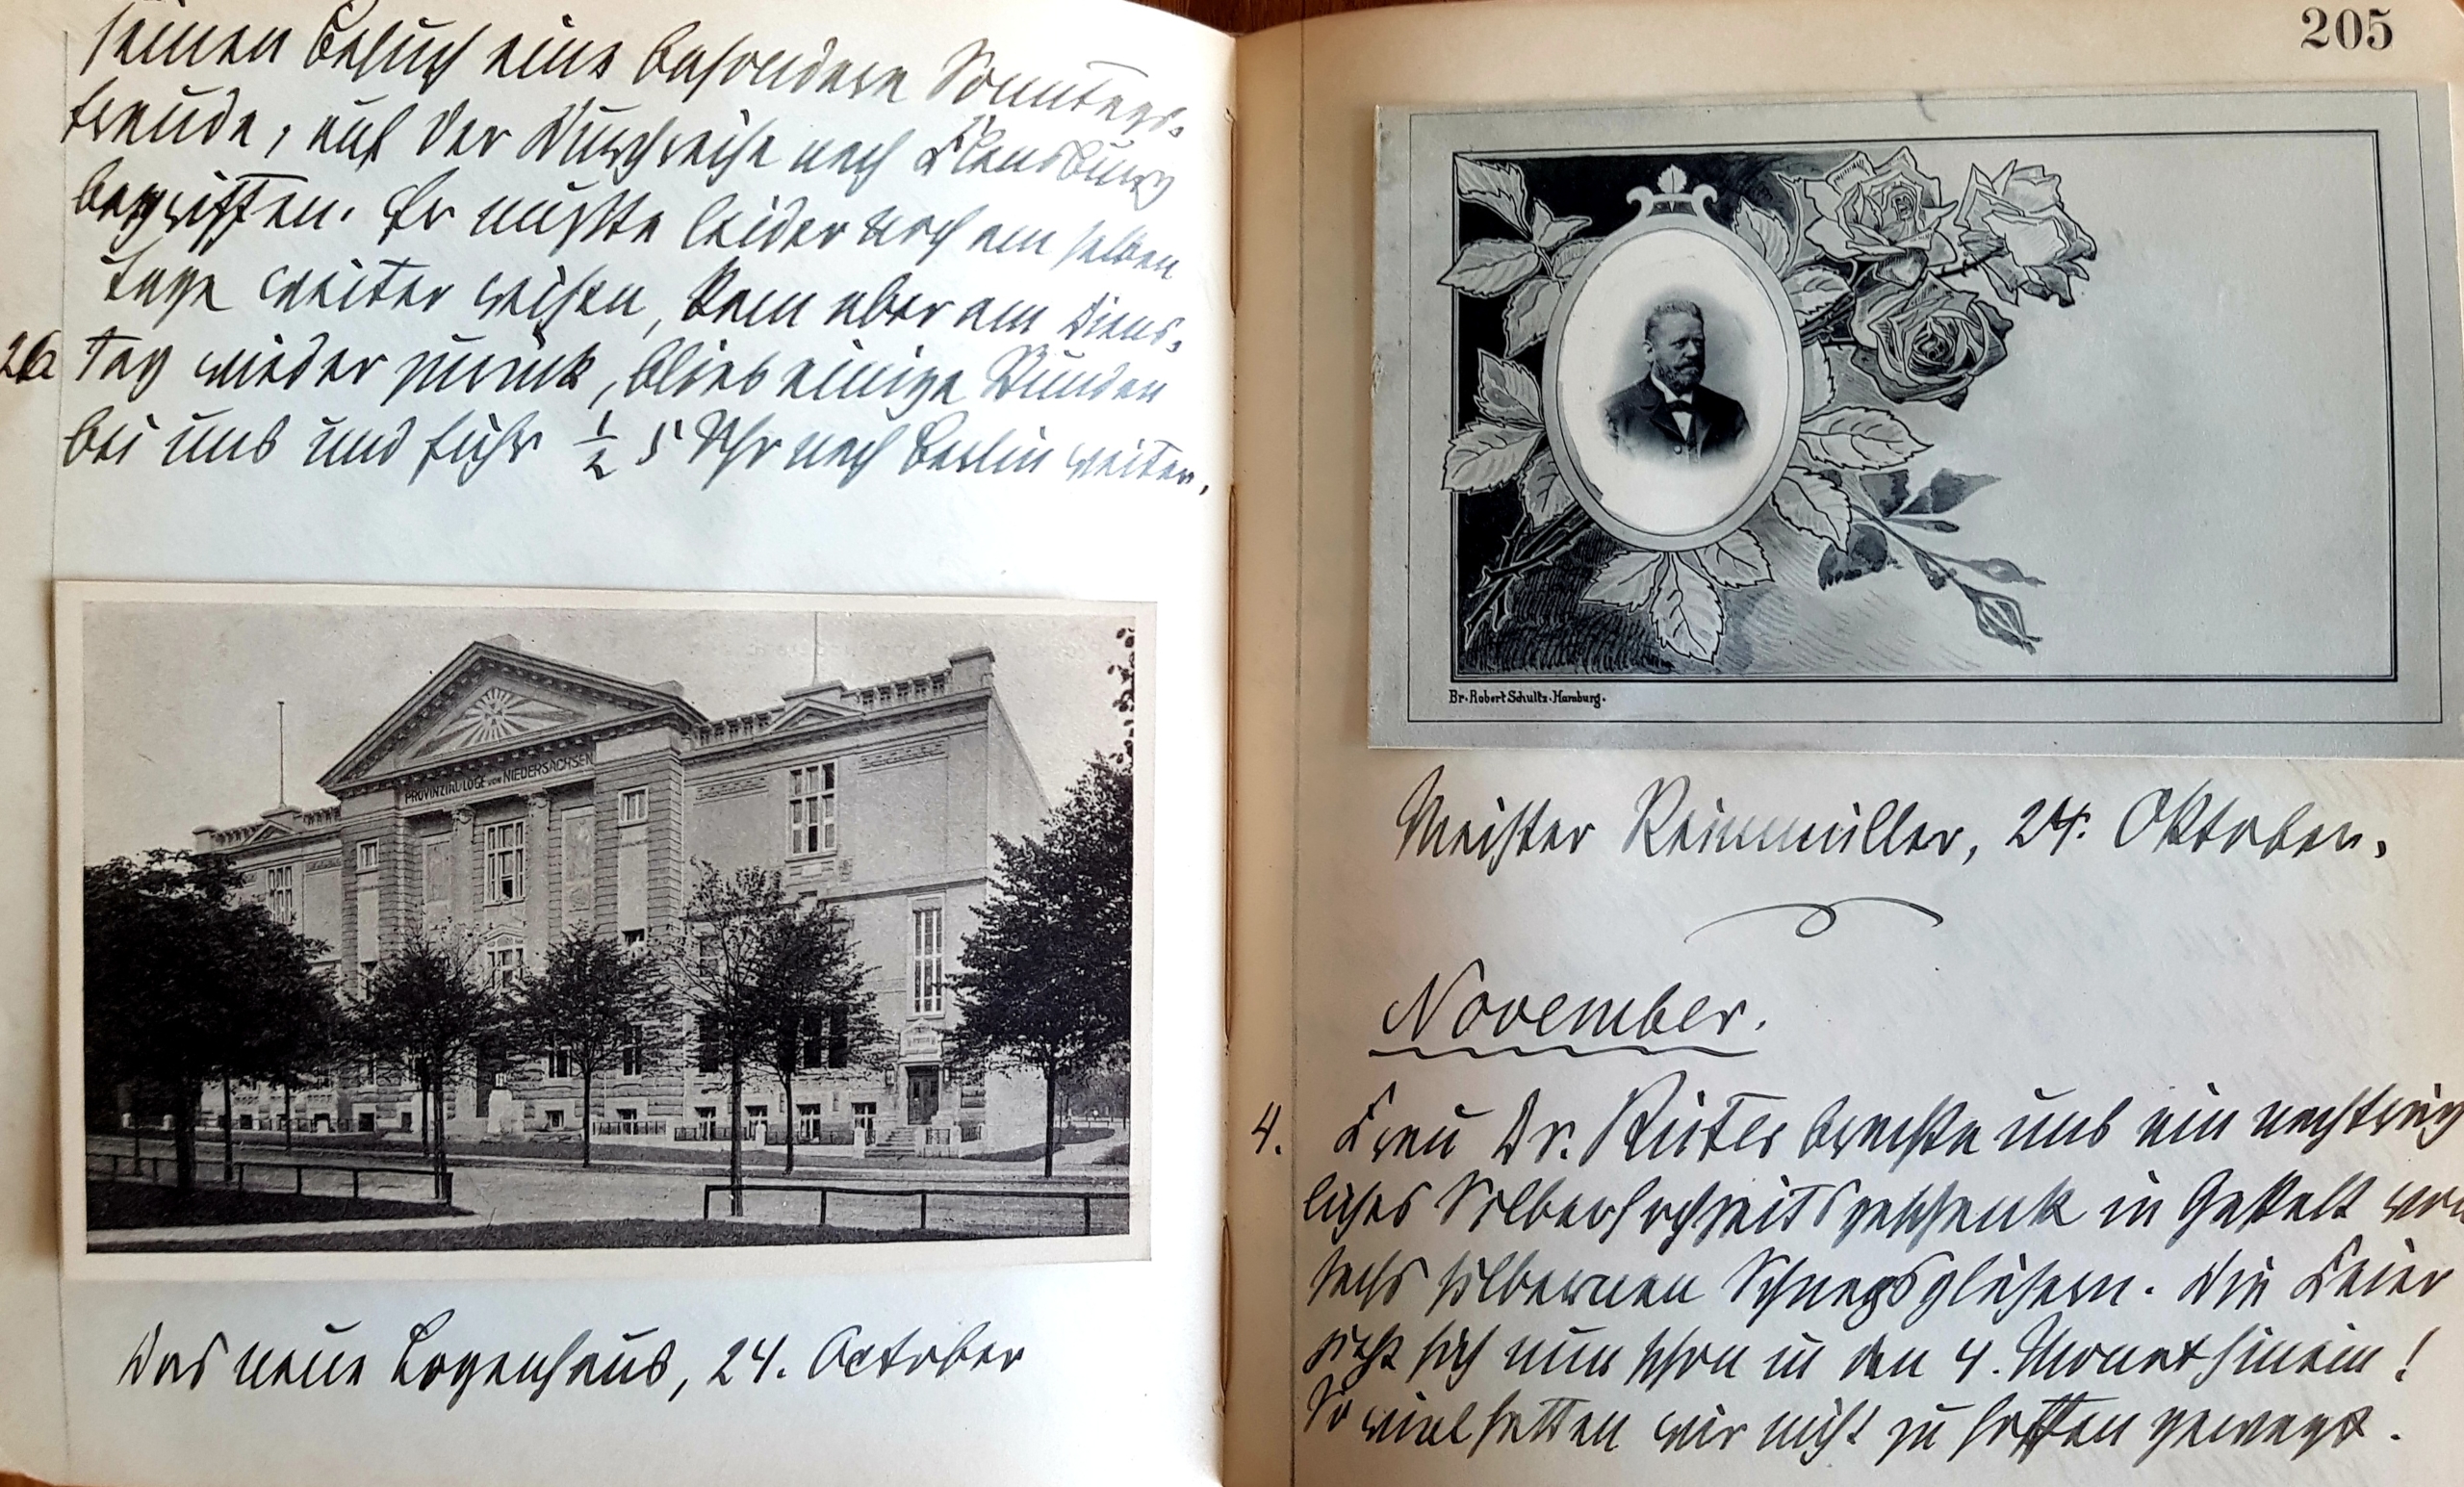 seinen Besuch eine besondere Sonntags-
freude, auf der Durchreise nach Flensburg
begriffen. Er mußte leider noch am selben
Tage weiter reisen, kam aber am Diens-
26 tag wieder zurück, blieb einige Stunden
bei uns und fuhr ½ 5 Uhr nach Berlin weiter.
PROVINZIALLOGE VON NIEDERSACHSEN
Das neue Logenhaus, 24. October
205
Br. Robert Schultz. Hamburg.
Meister Reinmüller, 24. Oktober.
November.
4. Frau Dr. Rüter brachte uns ein nachträg
liches Silberhochzeitsgeschenk in Gestalt von
sechs silbernen Schnapsgläsern. Die Feier
zieht sich nun schon in den 4. Monat hinein!
So viel hatten wir nicht zu hoffen gewagt.